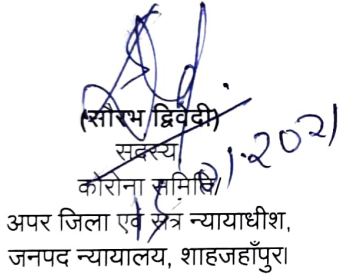 (सौरभ द्विवेदी)
सदस्य
कोरोना समिति/
अपर जिला एवं सत्र न्यायाधीश,
जनपद न्यायालय, शाहजहाँपुर।